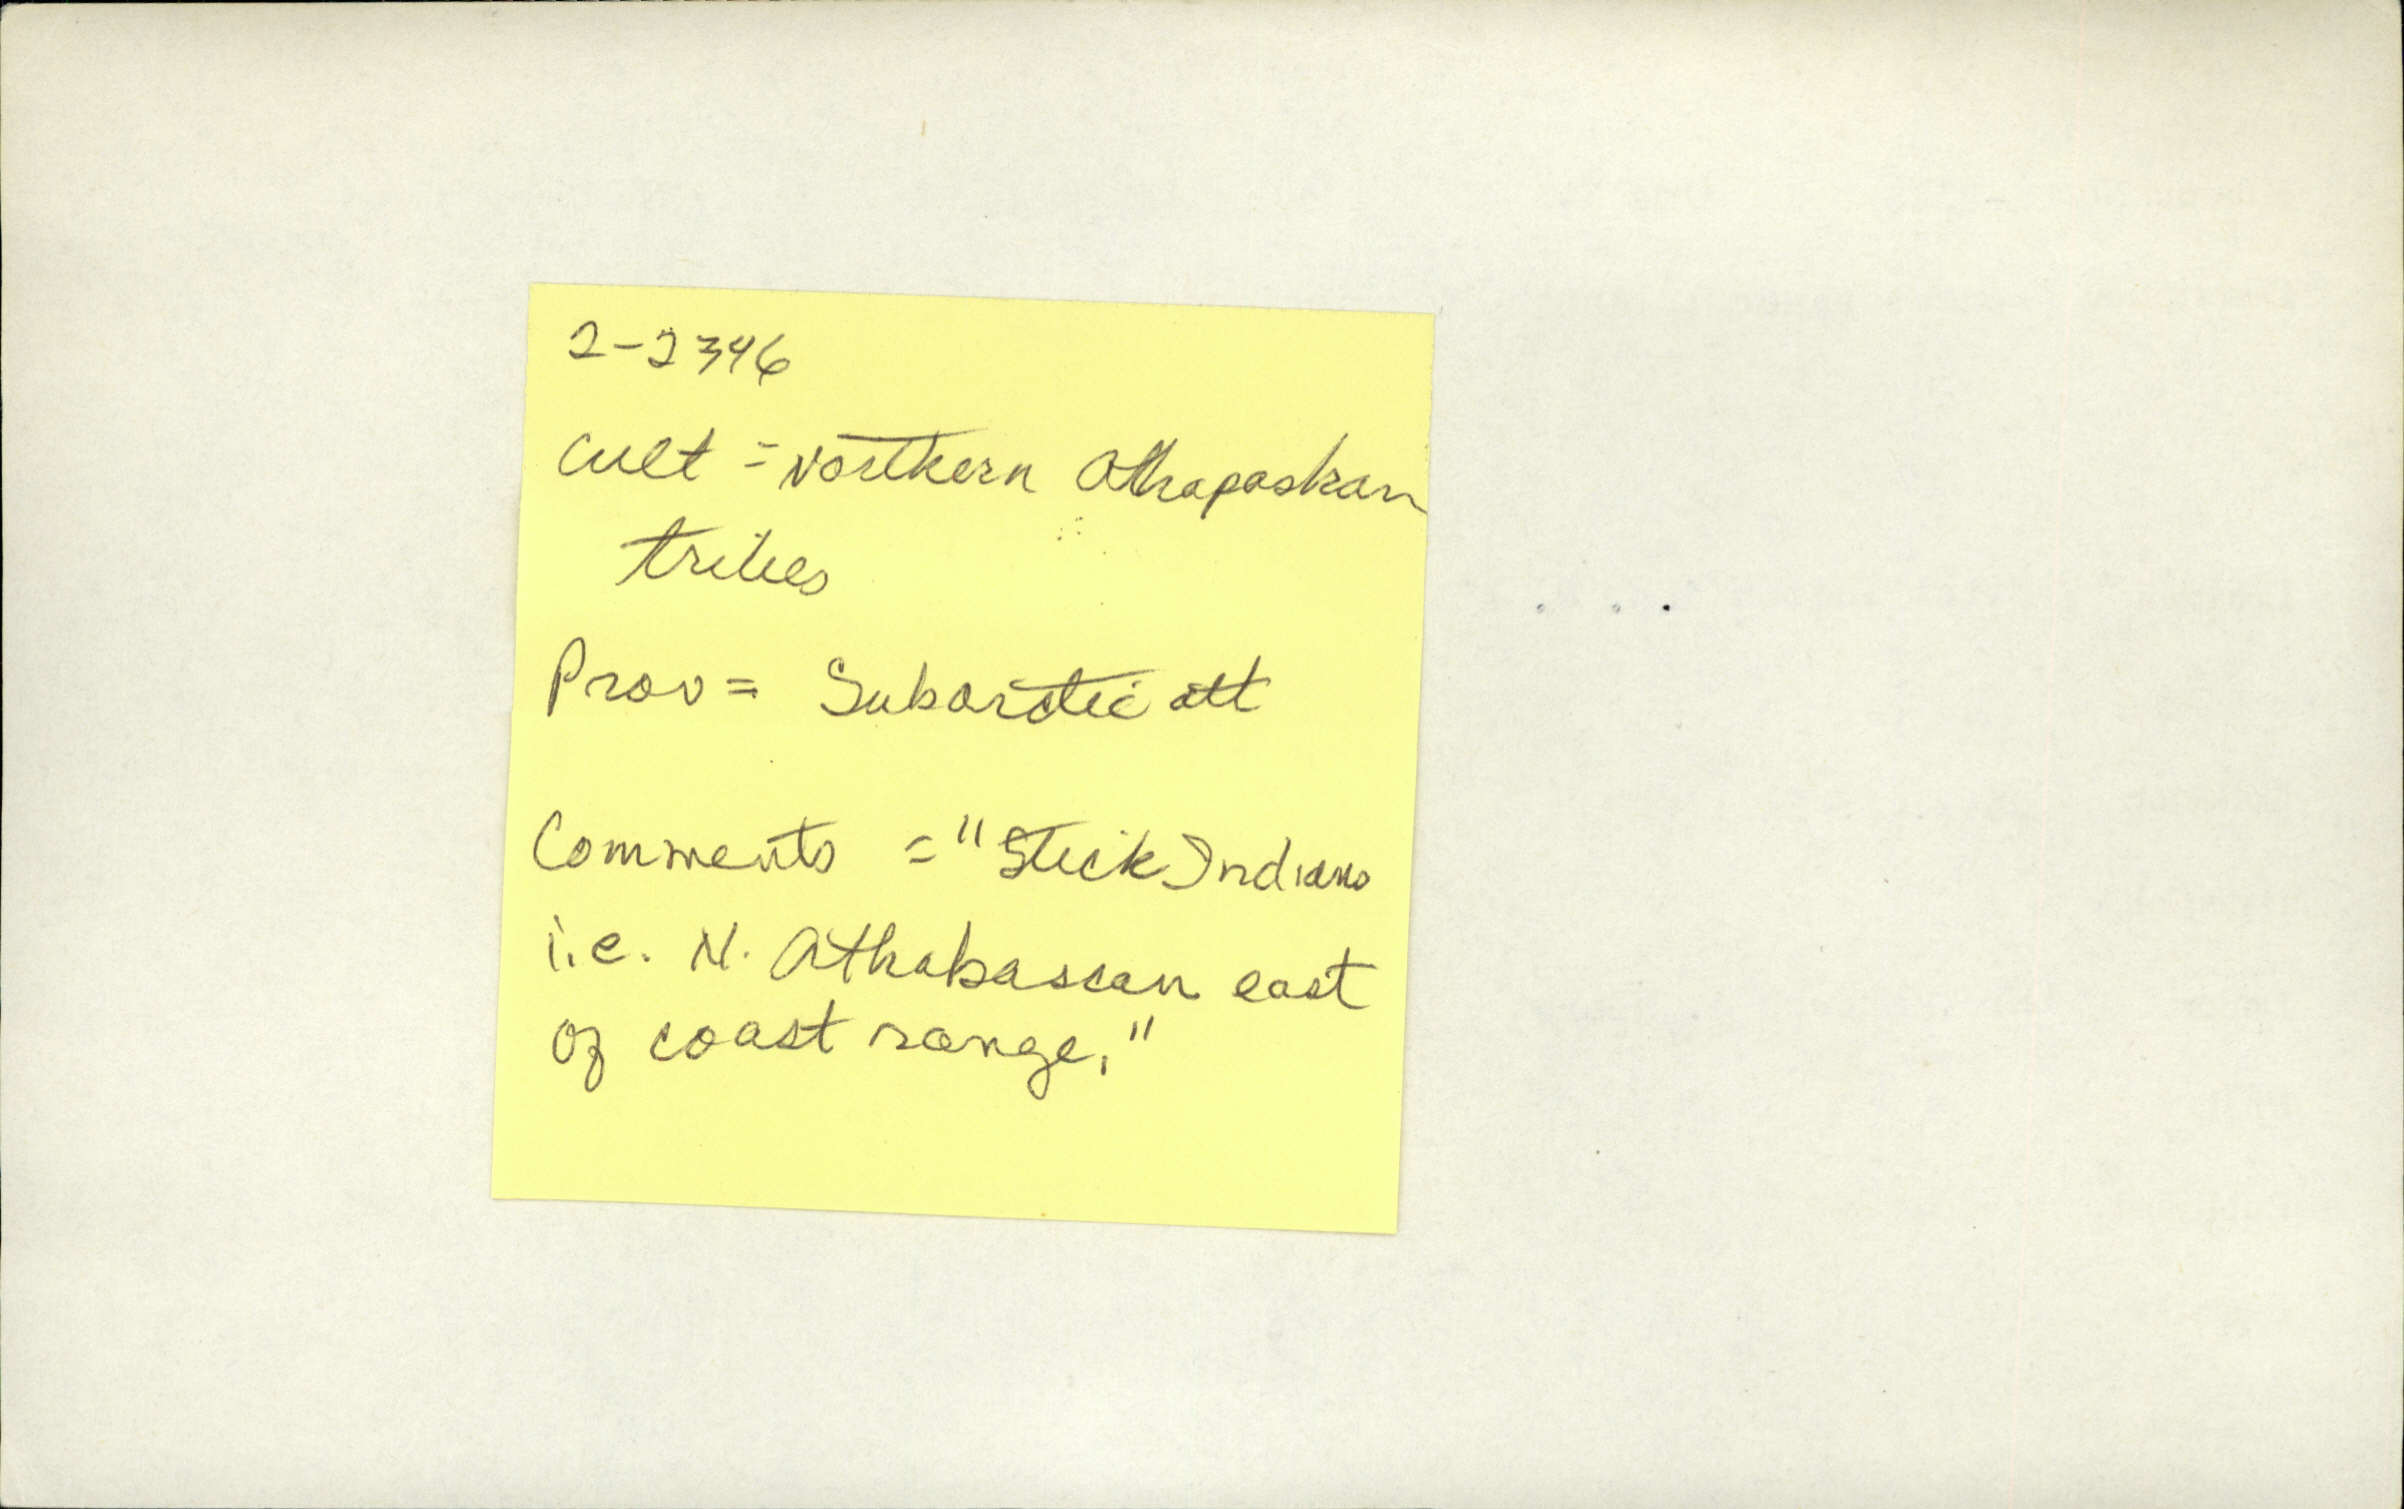 2-2346
Cult = Northern Athapaskan
tribes
Prov = Subarctic att
Comments = "Stick Indians
i.e. N. Athabascan east
of coast range."